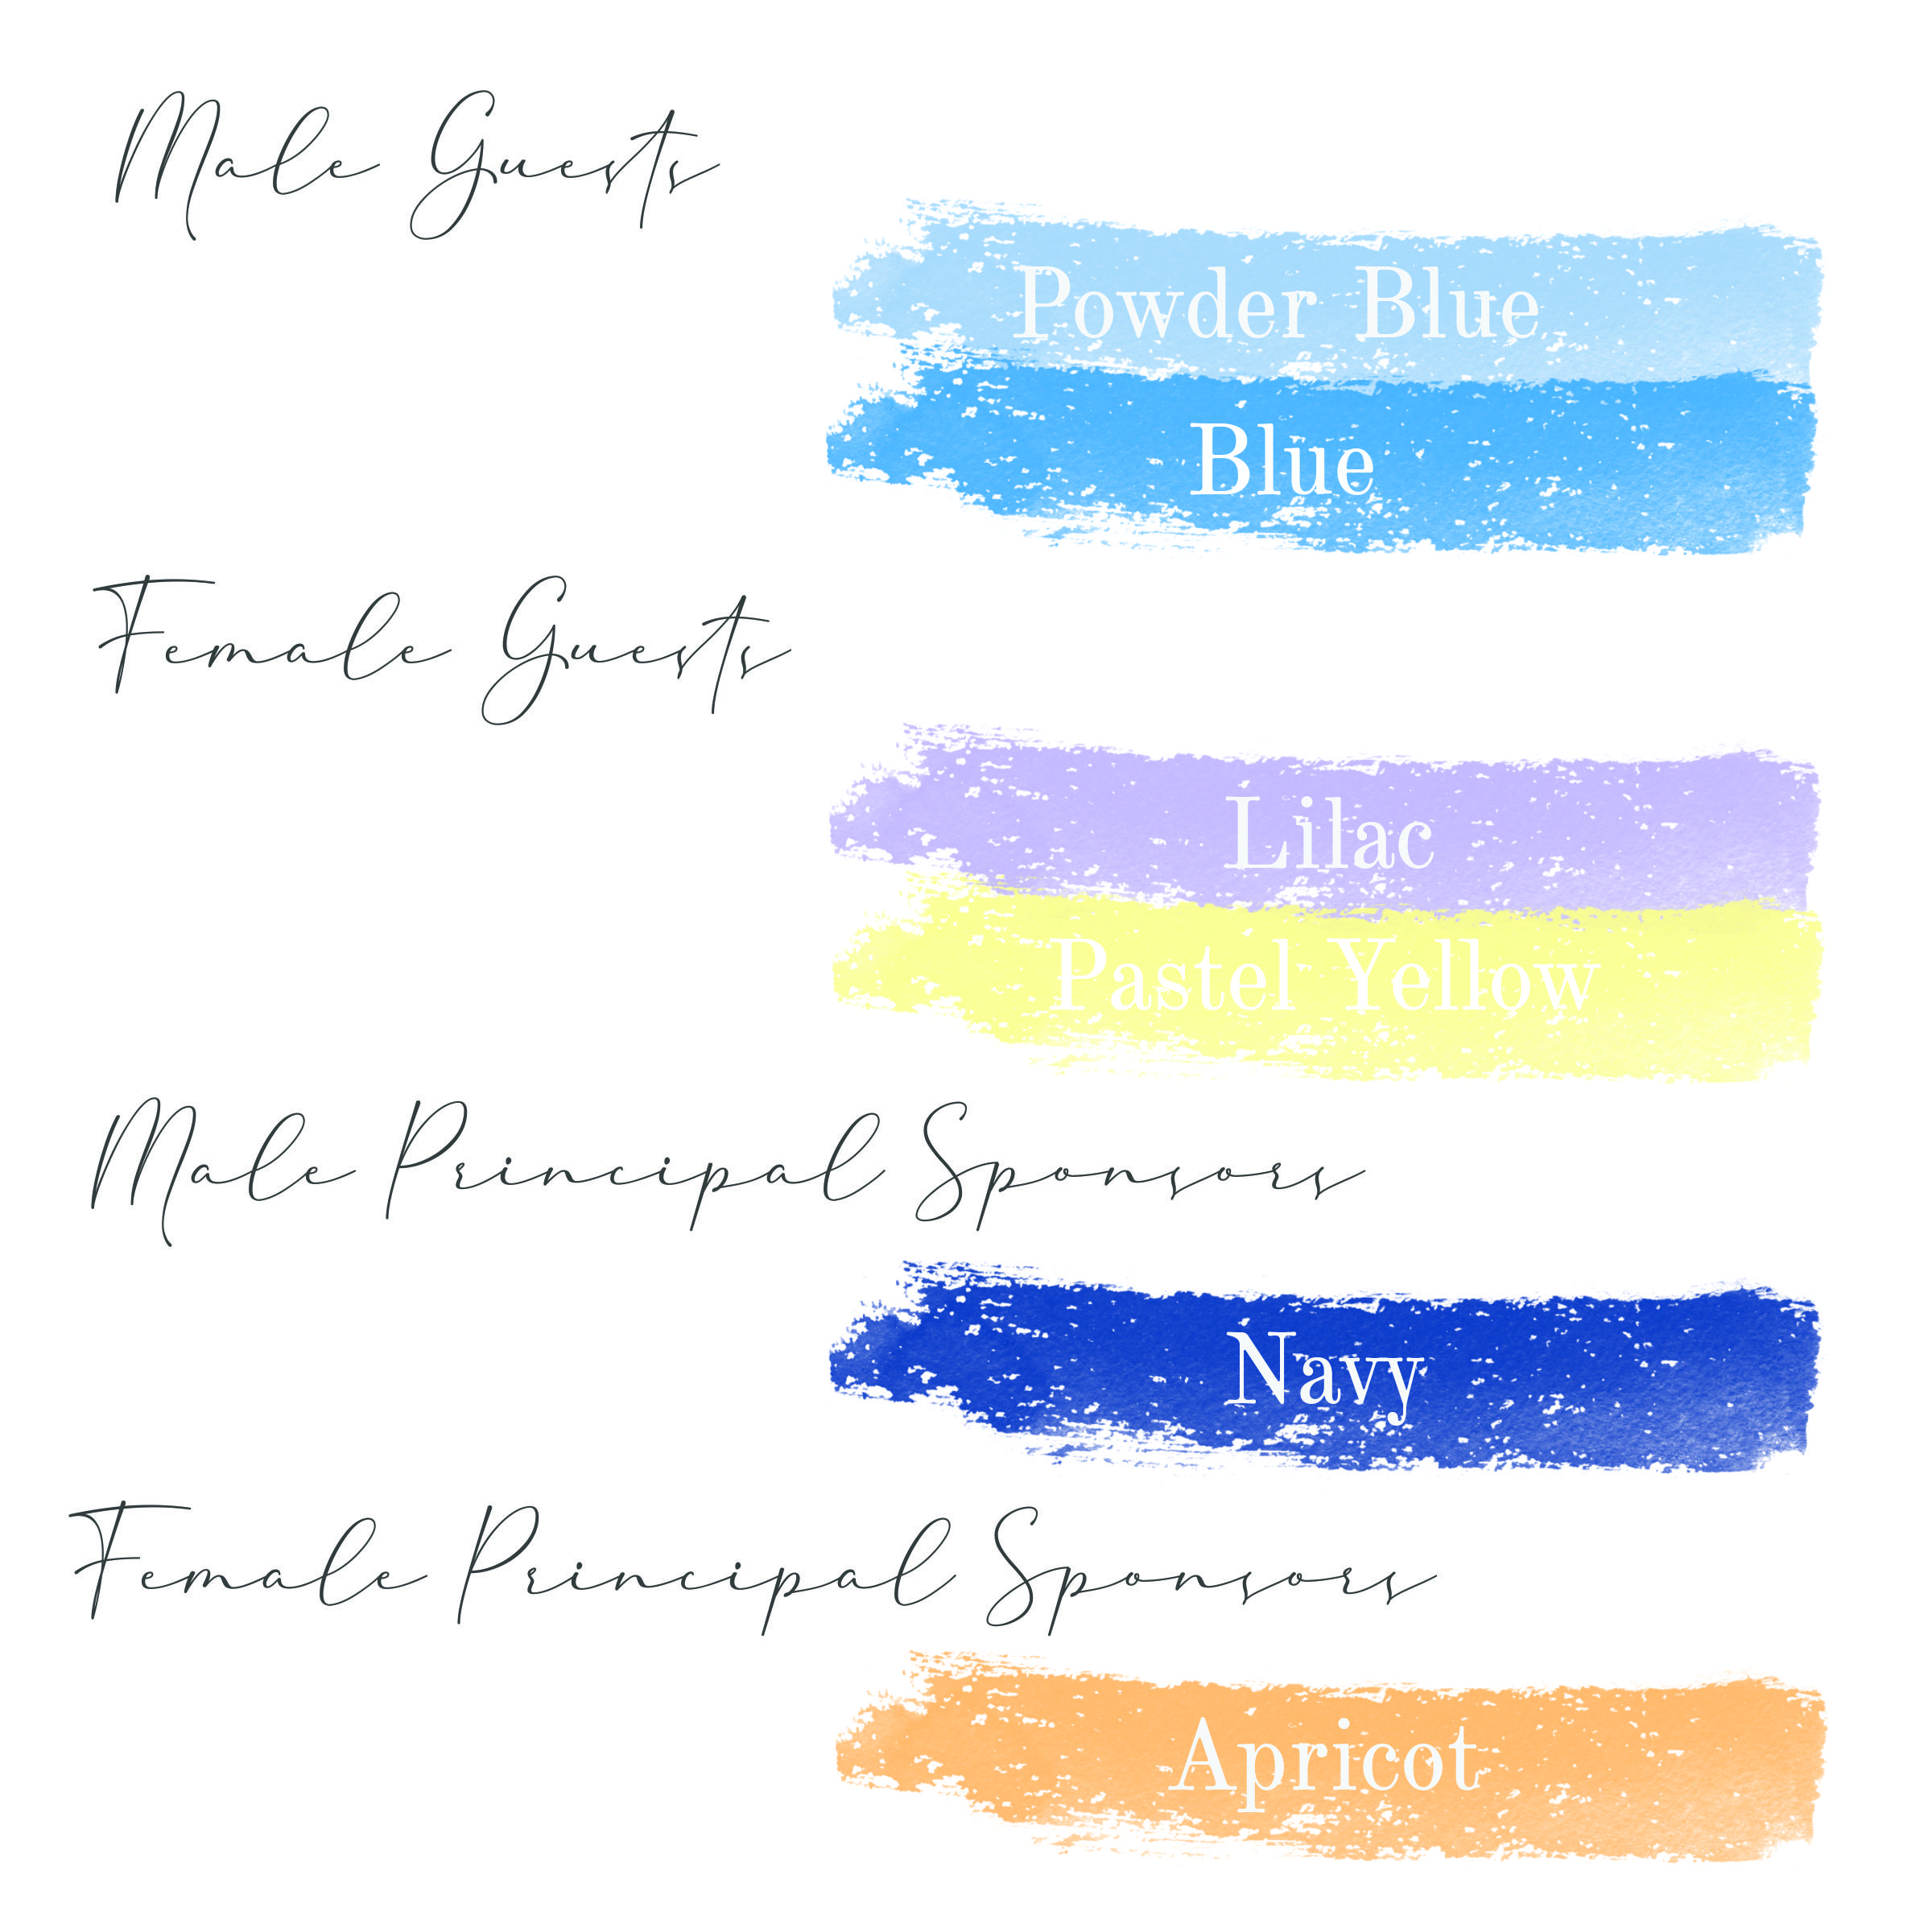 Male Guests
Powder Blue
Blue
Female Guests
Lilac
Pastel Yellow
Male Principal Sponsors
Navy
Female Principal Sponsors
Apricot